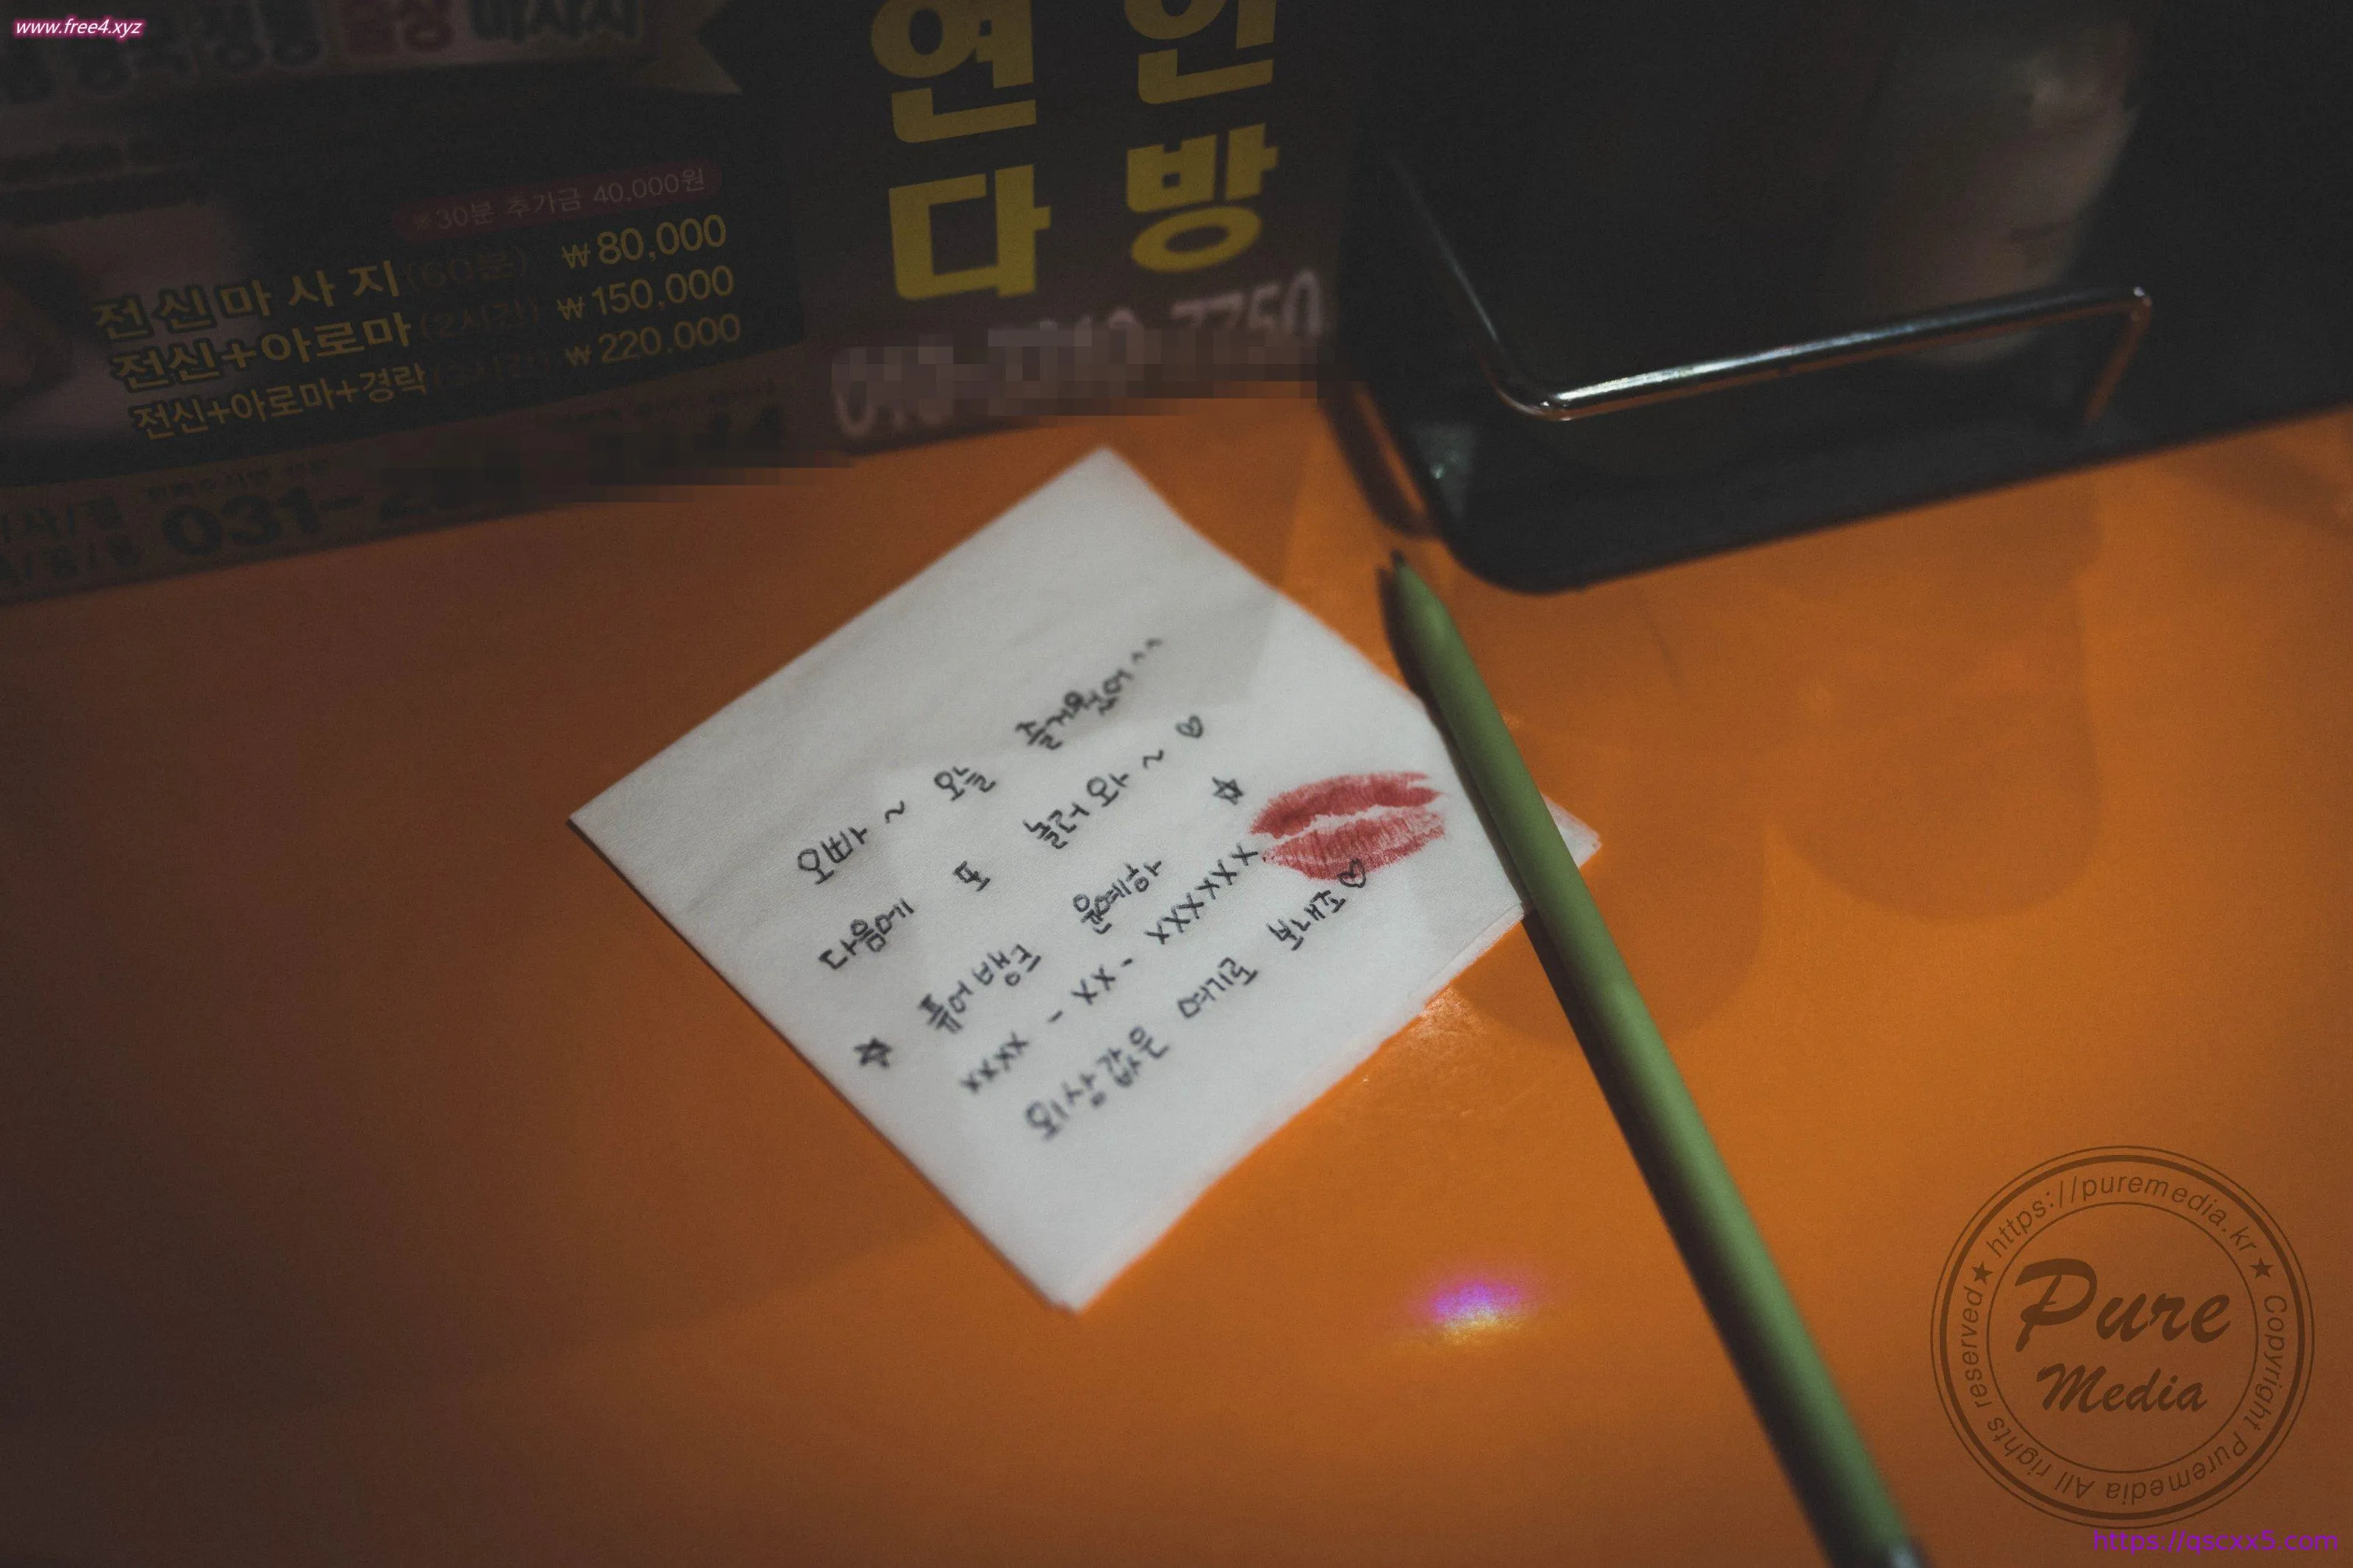 www.free4.xyz
※30분 추가금 40,000원
전신마사지(60분) ₩80,000
전신+아로마(2시간) ₩150,000
전신+아로마+경락 ₩220,000
031-
연인
다방
오빠~ 오늘 즐거웠어^^
다음에 또 놀러와~♡
☆ 퓨어뱅크 윤예하 ☆
xxxx-xx-xxxxxx
외상값은 여기로 보내죠♡
https://puremedia.kr ★ Copyright Puremedia All rights reserved ★
Pure
Media
https://qscxx5.com